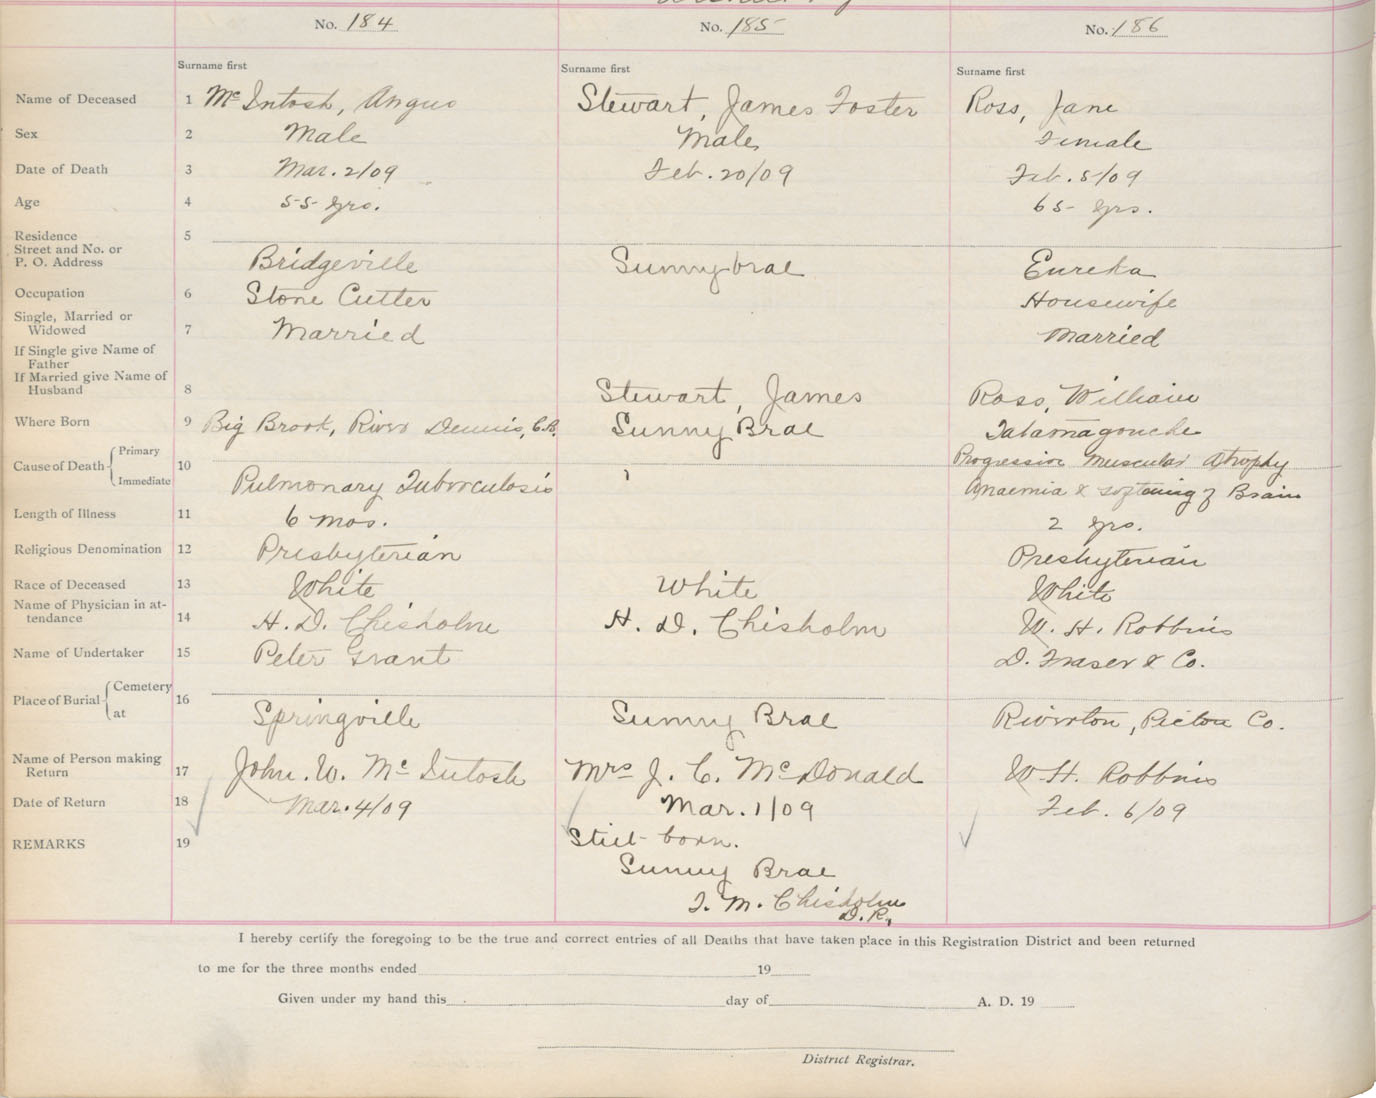 No. 184 No. 185 No. 186
Surname first Surname first Surname first
Name of Deceased 1 Mc Intosh, Angus Stewart, James Foster Ross, Jane
Sex 2 Male Male Female
Date of Death 3 Mar. 2/09 Feb. 20/09 Feb. 5/09
Age 4 55 yrs. 65 yrs.
Residence 5
Street and No. or
P. O. Address Bridgeville Sunny brae Eureka
Occupation 6 Stone Cutter Housewife
Single, Married or
Widowed 7 Married Married
If Single give Name of
Father
If Married give Name of
Husband 8 Stewart, James Ross, William
Where Born 9 Big Brook, River Dennis, C.B. Sunny Brae Tatamagouche
Cause of Death Primary 10 Progressive Muscular Atrophy
Immediate Pulmonary Tuberculosis Anaemia & softening of Brain
Length of Illness 11 6 mos. 2 yrs.
Religious Denomination 12 Presbyterian Presbyterian
Race of Deceased 13 White White White
Name of Physician in at-
tendance 14 H. D. Chisholm H. D. Chisholm W. H. Robbins
Name of Undertaker 15 Peter Grant D. Fraser & Co.
Place of Burial Cemetery 16
at Springville Sunny Brae Riverton, Pictou Co.
Name of Person making
Return 17 John. W. Mc Intosh Mrs J. C. McDonald W. H. Robbins
Date of Return 18 Mar. 4/09 Mar. 1/09 Feb. 6/09
REMARKS 19 Still born.
Sunny Brae
J. M. Chisholm
D. R.
I hereby certify the foregoing to be the true and correct entries of all Deaths that have taken place in this Registration District and been returned
to me for the three months ended 19
Given under my hand this day of A. D. 19
District Registrar.